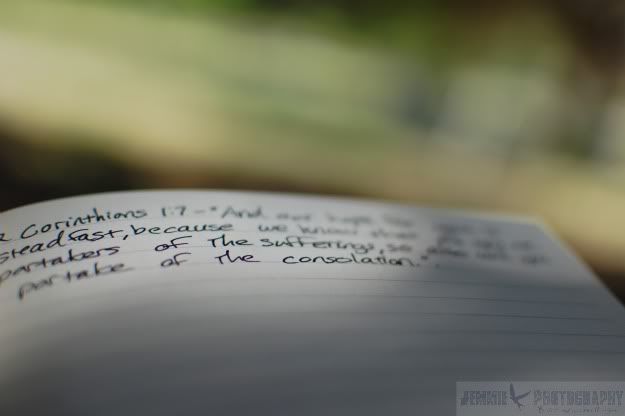 2 Corinthians 1:7 - "And our hope
steadfast, because we know that
partakers of the sufferings, so
partake of the consolation."
JEMMIE PHOTOGRAPHY